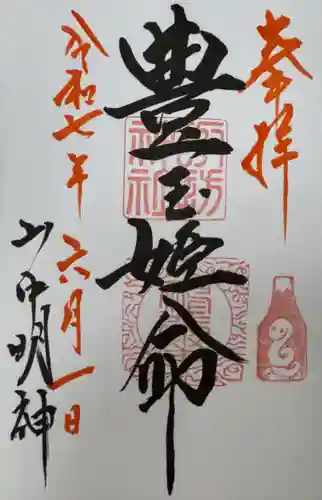 奉拝
豊玉姫命
令和七年
六月一日
山中明神